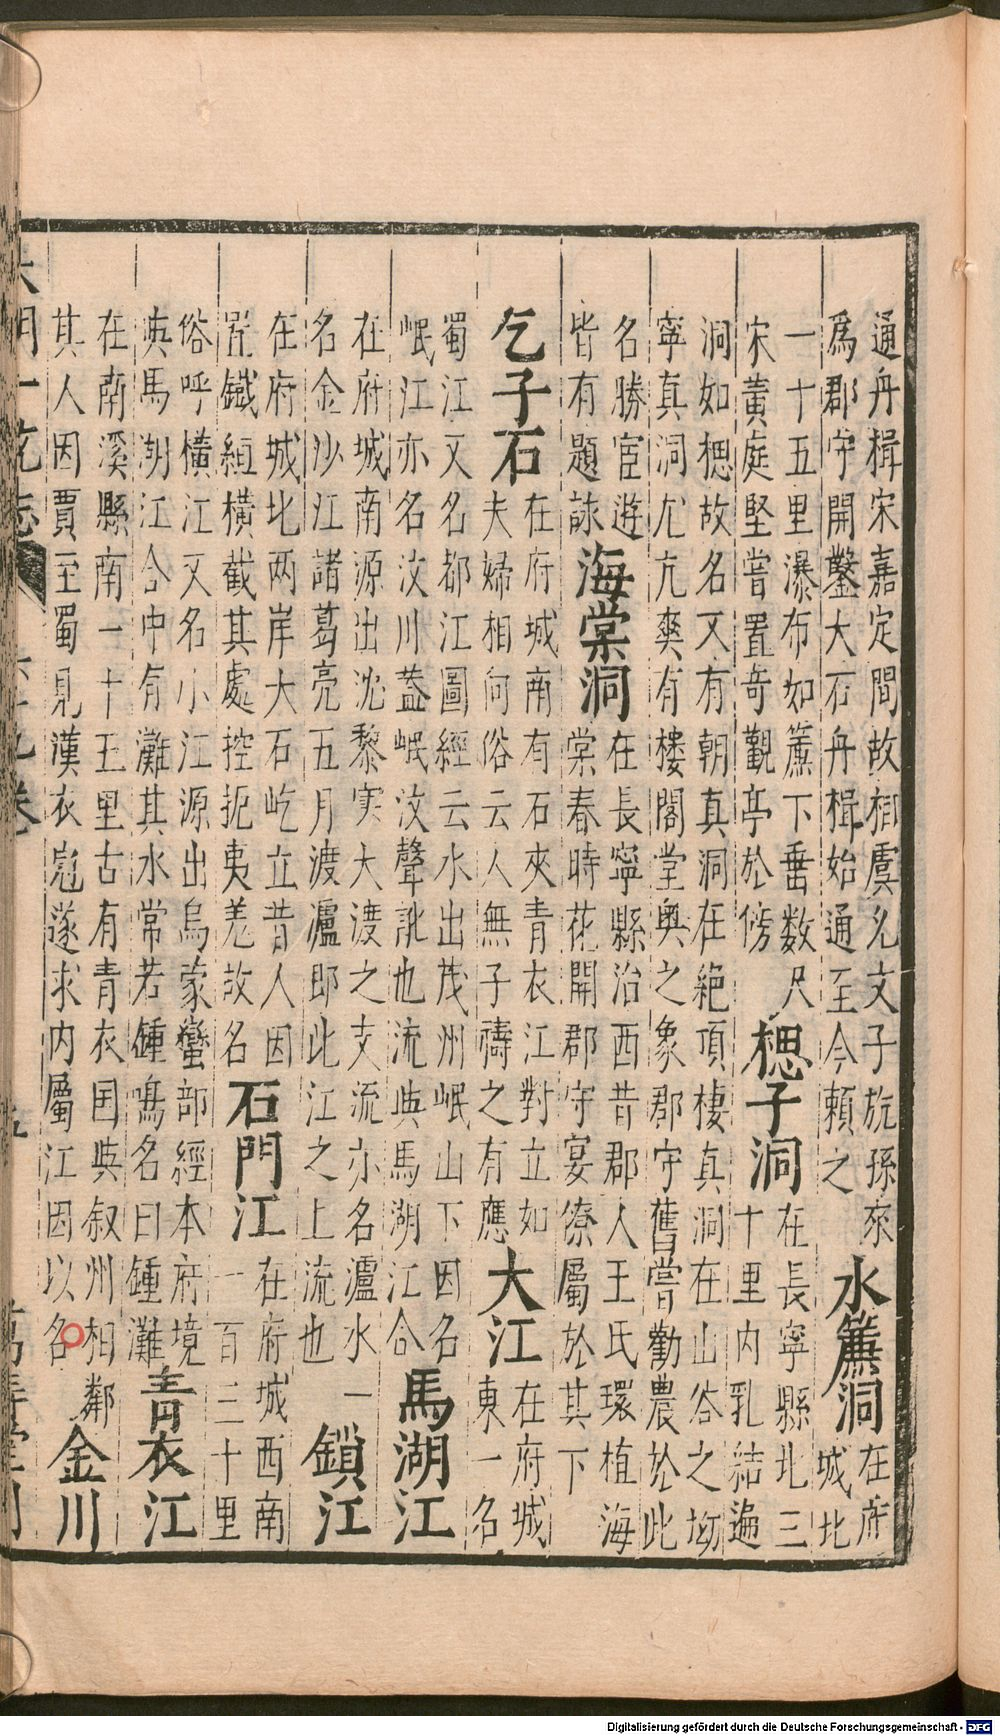 通舟楫宋嘉定間故相虞允文子旂孫來
為郡守開鑿大石舟楫始通至今賴之
水簾洞
在府
城北
一十五里瀑布如簾下垂数尺
宋黃庭堅嘗置奇觀亭於傍
楒子洞
在長寧縣北三
十里內乳結遍
洞如楒故名又有朝真洞在絕頂棲真洞在山谷之坳
寧真洞尤亢爽有樓閣堂奧之象郡守舊嘗勸農於此
名勝宦遊
皆有題詠
海棠洞
在長寧縣治西昔郡人王氏環植海
棠春時花開郡守宴僚屬於其下
乞子石
在府城南有石夾青衣江對立如
夫婦相向俗云人無子禱之有應
大江
在府城
東一名
蜀江又名都江圖經云水出茂州岷山下因名
岷江亦名汶川蓋岷汶聲訛也流與馬湖江合
馬湖江
在府城南源出沈黎实大渡之支流亦名瀘水一
名金沙江諸葛亮五月渡瀘即此江之上流也
鎖江
在府城北两岸大石屹立昔人因
置鐵絙橫截其處控扼夷羌故名
石門江
在府城西南
一百三十里
俗呼橫江又名小江源出烏蒙蠻部經本府境
與馬湖江合中有灘其水常若鍾鳴名曰鍾灘
青衣江
在南溪縣南一十五里古有青衣国與叙州相鄰
其人因賈至蜀見漢衣冠遂求内屬江因以名
金川
大明一統志
萬壽堂刊
Digitalisierung gefördert durch die Deutsche Forschungsgemeinschaft - DFG